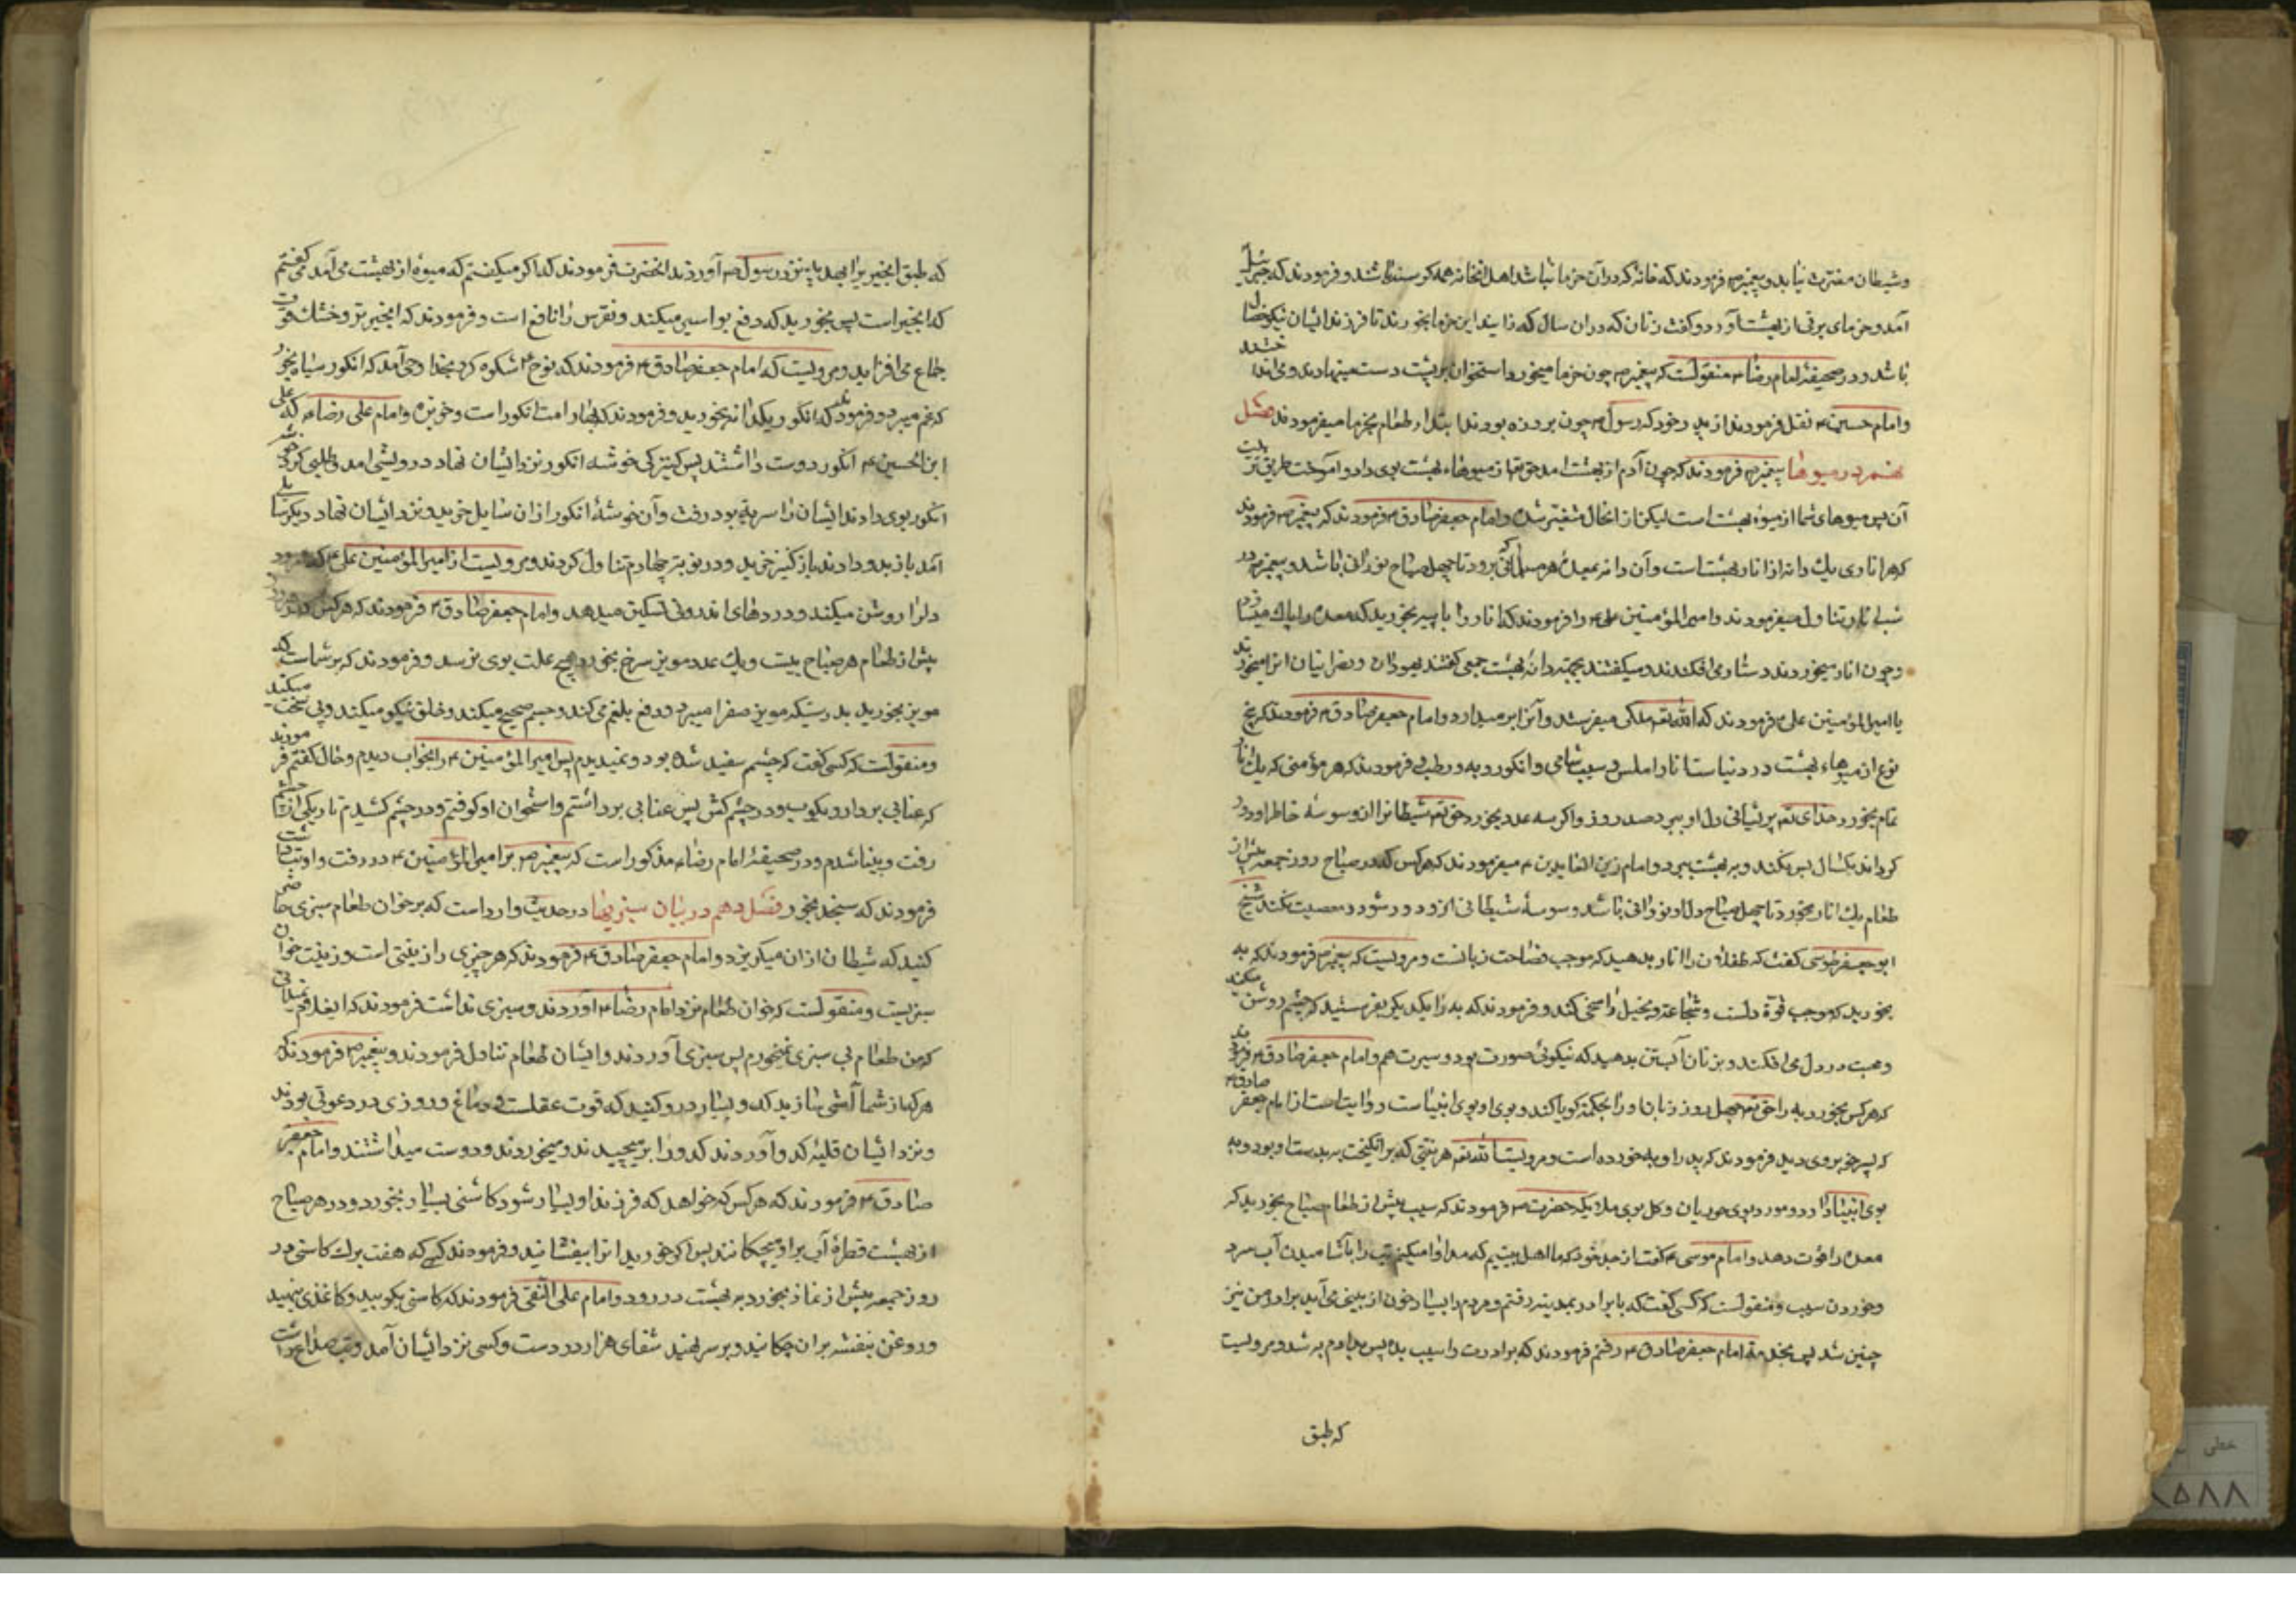 و شیطان مقترن نیاید و پیغمبر ص فرمودند که خانه که در آن خرما نباشد اهل انخانه همه کرسنه باشند و فرمودند که جبرئیل
آمد و خرمای برنی از بهشت آورد و کفت زنان که در ان سال که زایند این خرما بخورند تا فرزند ایشان نیکو خصال
باشد و در صحیفهٔ امام رضا ع منقولست که پیغمبر ص چون خرما میخورد استخوان بر پشت دست مینهادی و می انداختند
و امام حسین ع نقل فرمودند از پدر خود که رسول ص چون بروزه بودند ابتدا طعام بخرما میفرمودند فصل
نهم در میوها پیغمبر ص فرمودند که چون آدم از بهشت امد حق تع از میوهاء بهشت بوی داد و آموخت طریق تربیت
آن پس میوهای شما از میوه بهشت است لیکن از انحال متغیر شده و امام جعفر صادق ع فرمودند که پیغمبر ص فرمودند
که هر اناری یک دانه از انار بهشت است و آن دانه بمعدهٔ هر مسلمانی که برود تا چهل صباح نورانی باشد و پیغمبر ص در
شب انار تناول میفرمودند و امیر المؤمنین علی ع را فرمودند که انار را با پیه بخورید که معده را پاک میسازد
و چون انار میخوردند دستار می افکندند و میکفتند بجهته دانهٔ بهشت جمعی کفتند یهودان و نصرانیان انرا میخورند
یا امیر المؤمنین علی ع فرمودند که الله تع ملکی میفرستد و آنرا بر میدارد و امام جعفر صادق ع فرمودند که پنج
نوع از میوهاء بهشت در دنیاست انار املس و سیب شامی و انکور و به و رطب و فرمودند که هر مؤمنی که یک انار
تمام بخورد خدای تع پریشانی دل او ببرد صد روز و اکر سه عدد بخورد حق تع شیطان را از وسوسهٔ خاطر او دور
کرداند یکسال پس نکند و به بهشت ببرد و امام زین العابدین ع میفرمودند که هر کس که در صباح روز جمعه پیش از
طعام یک انار بخورد تا چهل صباح دل او نورانی باشد و وسوسهٔ شیطانی از و دور شود و معصیت نکند شیخ
ابو جعفر طوسی کفت که طفلان را انار بدهید که موجب فصاحت زبانست و مرویست که پیغمبر ص فرمودند که به
بخورید که موجب قوّة دلست و شجاعت و بخیل را سخی کند و فرمودند که به را بیکدیکر بفرستید که چشم روشن میکند
و محبت در دل می افکند و بزنان آبستن بدهید که نیکوئی صورت بود و سیرت هم و امام جعفر صادق ع فرمودند
که هر کس بخورد به را حق تع چهل روز زبان او را بحکمة کویا کند و بوی او بوی انبیاست روایتست از امام جعفر صادق ع
که پسر خوبروی دید فرمودند که پدر او به خورده است و مرویست الله تع هر نبیّی که بر انکیخت به بدست او بود و به
بوی انبیا دارد و مورد بوی حوریان و کل بوی ملایکه حضرت ص فرمودند که سیب پیش از طعام صباح بخورید که
معده را قوت دهد و امام موسی ع کفت از جد خود که ما اهل بیتیم که مداوا میکنیم تب را بآشامیدن آب سرد
و خوردن سیب و منقولست که کسی کفت که با برادر بمدینه رفتم و مردم را بسیار خون از بینی می آمد برادر من نیز
چنین شد پس بخدمة امام جعفر صادق ع رفتم فرمودند که برادرت را سیب بده پس بدادم به شد و مرویست
که طبق
که طبق انجیر برا بهدیه نزد رسول ص آوردند انحضرت فرمودند که اکر میکفتم که میوهٔ از بهشت می آمد می کفتم
که انجیر است پس بخورید که دفع بواسیر میکند و نقرس را نافع است و فرمودند که انجیر تر و خشک قوت
جماع می افزاید و مرویست که امام جعفر صادق ع فرمودند که نوح ع شکوه کرد بخدا وحی آمد که انکور سیاه بخور
که غم میبرد و فرمودند که انکور یکدانه بخورید و فرمودند که بهار امت انکور است و خربزه و امام علی رضا ع که علی
ابن الحسین ع انکور دوست داشتند پس کنیزکی خوشه انکور نزد ایشان نهاد درویشی امد و طلبی کرد خوشه
انکور بوی دادند ایشان را سریهٔ بود رفت و آن خوشهٔ انکور از ان سایل خرید و نزد ایشان نهاد دیکر سایلی
آمد باز بدو دادند باز کنیز خرید و در نوبتر چهارم تناول کردند و مرویست از امیر المؤمنین علی ع که مویز
دلرا روشن میکند و دردهای اندرونی تسکین میدهد و امام جعفر صادق ع فرمودند که هر کس
پیش از طعام هر صباح بیست و یک عدد مویز سرخ بخورد هیچ علت بوی نرسد و فرمودند که بر شماست که
مویز بخورید بدرستیکه مویز صفرا میبرد و دفع بلغم می کند و جسم صحیح میکند و خلق نیکو میکند و پی سخت میکند
و منقولست که کسی کفت که چشمم سفید شده بود و نمیدیدم پس امیر المؤمنین ع را بخواب دیدم و حال کفتم فرمودند
که عنابی بردار و بکوب و در چشم کش پس عنابی برداشتم و استخوان او کوفتم و در چشم کشیدم تاریکی از چشم
رفت و بینا شدم و در صحیفهٔ امام رضا ع مذکور است که پیغمبر ص بر امیر المؤمنین ع در رفت و او تب داشت
فرمودند که سنجد بخور فصل دهم در بیان سبزیها در حدیث وارد است که بر خوان طعام سبزی حاضر
کنید که شیطان از ان میکریزد و امام جعفر صادق ع فرمودند که هر چیزی را زینتی است و زینت خوان
سبزیست و منقولست که خوان طعام نزد امام رضا ع آوردند و سبزی نداشت فرمودند که ایغلام نمیدانی
که من طعام بی سبزی نمیخورم پس سبزی آوردند و ایشان طعام تناول فرمودند و پیغمبر ص فرمودند که
هر که از شما آشی سازید کدو بسیار در و کنید که قوت عقلست و دماغ و روزی در دعوتی بودند
و نزد ایشان قلیهٔ کدو آوردند کدو را بر میچیدند و میخوردند و دوست میداشتند و امام جعفر
صادق ع فرمودند که هر کس که خواهد که فرزند او بسیار شود کاسنی بسیار بخورد و در هر صباح
از بهشت قطرهٔ آب بر او میچکانند پس اکر خورید انرا بیفشانید و فرمودند کسی که هفت برک کاسنی در
روز جمعه پیش از نماز بخورد به بهشت در رود و امام علی النقی فرمودند که کاسنی بکوبید و کاغذی نهید
و روغن بنفشه بران چکانید و بر سر نهید شفای هزار درد است و کسی نزد ایشان آمد و تب صداع داشت
خطی
۸۵۸۸